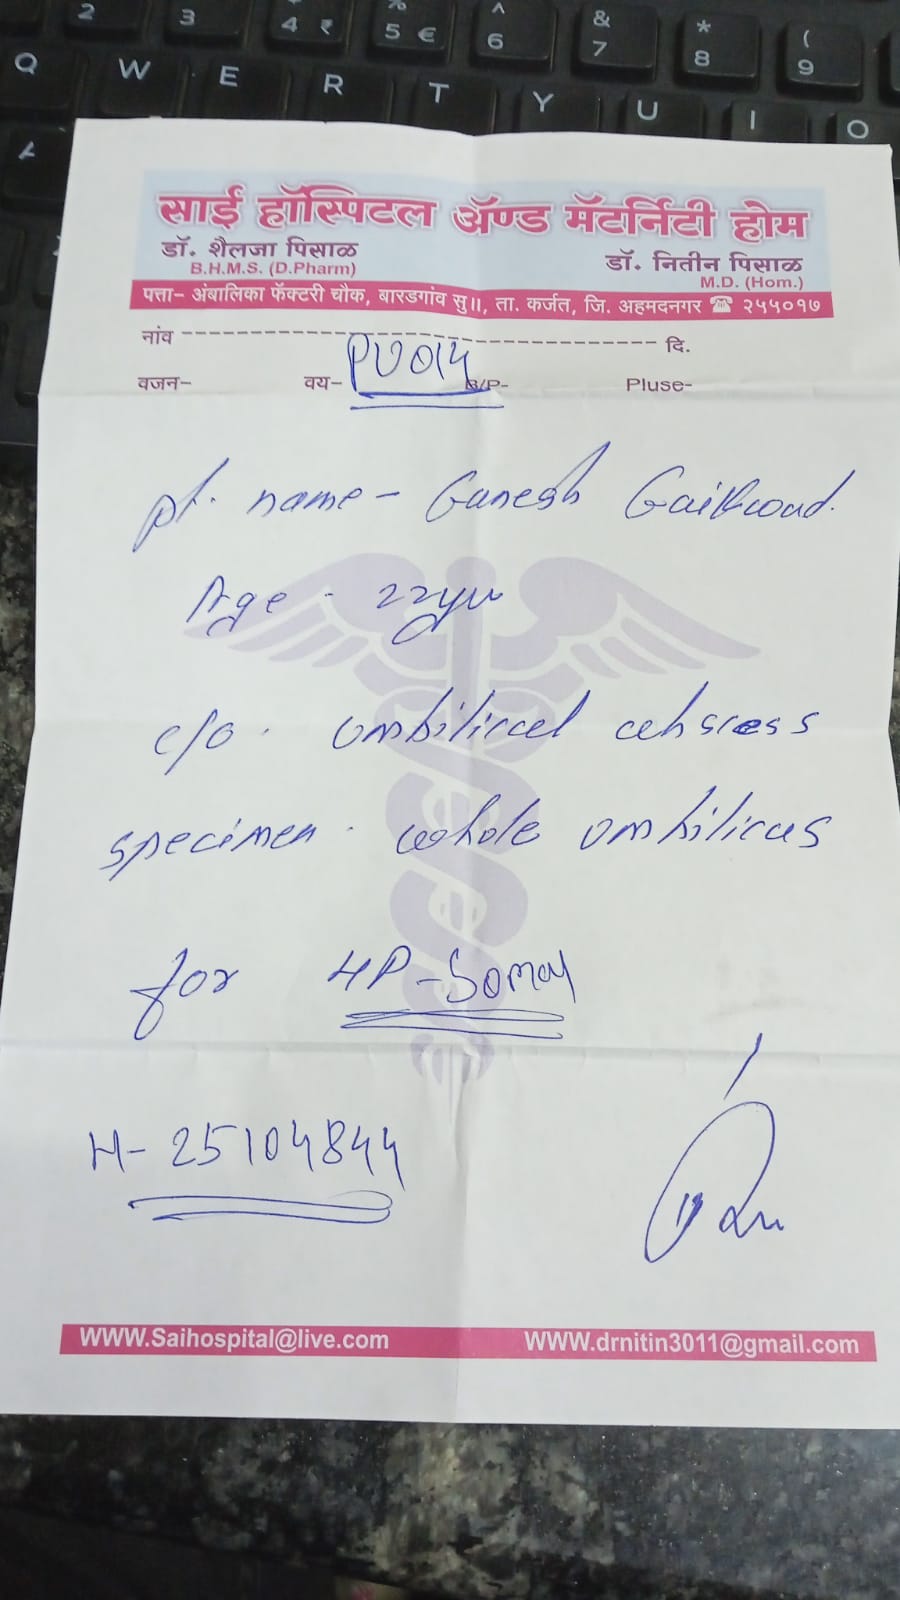 साई हॉस्पिटल ॲण्ड मॅटर्निटी होम
डॉ. शैलजा पिसाळ
B.H.M.S. (D.Pharm)
डॉ. नितीन पिसाळ
M.D. (Hom.)
पत्ता- अंबालिका फॅक्टरी चौक, बारडगांव सु॥, ता. कर्जत, जि. अहमदनगर ☎ २५५०१७
नांव ---------- दि.
वजन- वय- B/P- Pluse-
PU014
pt. name - Ganesh Gaikwad.
Age - 22yr
c/o. umbilical abscess
specimen. whole umbilicus
for HP-
H- 25104844
WWW.Saihospital@live.com WWW.drnitin3011@gmail.com
2 3 4 ₹ 5 € ^ 6 & 7 * 8 ( 9
Q W E R T Y U I O
A